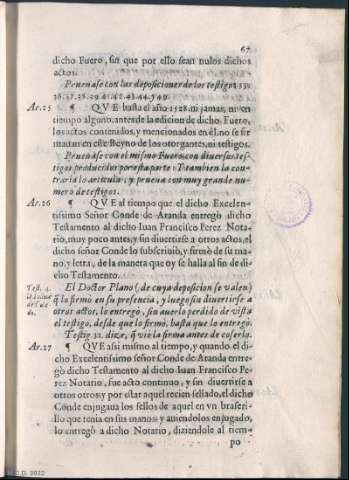 67
dicho Fuero, sin que por ello sean nulos dichos
actos.
Prueuase con las deposiciones de los testigos
36. 37. 38. 39. 41. 42. 43. 44. y 49.
Ar. 25 ¶ QVE hasta el año 1528. ni jamas, ni en
tiempo alguno, antes de la edicion de dicho Fuero,
los actos contenidos, y mencionados en èl, no se fir
mauan en este Reyno de los otorgantes, ni testigos.
Prueuase con el mismo Fuero, con diuersos tes-
tigos producidos por esta parte: Y tambien la con-
traria lo articula, y prueua con muy grande nu-
mero de testigos.
Ar. 26 ¶ QVE al tiempo que el dicho Excelen-
tissimo Señor Conde de Aranda entregò dicho
Testamento al dicho Iuan Francisco Perez Nota-
rio, muy poco antes, y sin diuertirse a otros actos, el
dicho señor Conde lo subscriuiò, y firmò de su ma-
no, y letra, de la manera que oy se halla al fin de di-
cho Testamento.
Test. 4. El Doctor Plano (de cuya deposicion se valen)
q̃ lo firmò en su presencia, y luego sin diuertirse a
otros actos, lo entregò, sin auerlo perdido de vista
el testigo, desde que lo firmò, hasta que lo entregò.
Testig. 32. dize, q̃ viò la firma antes de coserlo.
Ar. 27 ¶ QVE assi mismo al tiempo, y quando el di-
cho Excelentissimo señor Conde de Aranda entre
gò dicho Testamento al dicho Iuan Francisco Pe-
rez Notario, fue acto continuo, y sin diuertirse a
otros otro: y por estar aquel recien sellado, el dicho
Conde enjugaua los sellos de aquel en vn braseri-
llo que tenia en sus manos: y auiendolos enjugado,
lo entregò a dicho Notario, diziendole al tiem-
po
C.D. 2022